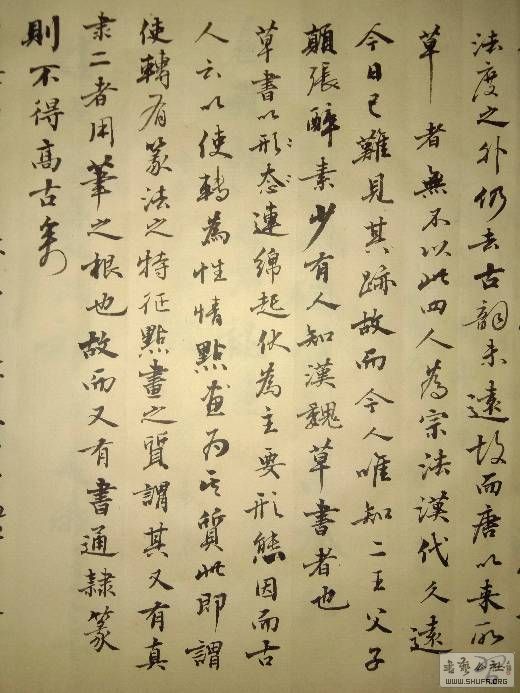 法度之外仍去古韻未遠故而唐以来所
草者無不以此四人為宗法漢代久遠
今日已難見其跡故而今人唯知二王父子
顛張醉素少有人知漢魏草書者也
草書以形态連綿起伏為主要形態因而古
人云以使轉為性情點画為其質此即謂
使轉有篆法之特征點畫之質謂其又有真
隶二者用筆之根也故而又有書通隸篆
則不得高古矣
书艺公社
WWW.SHUFA.ORG